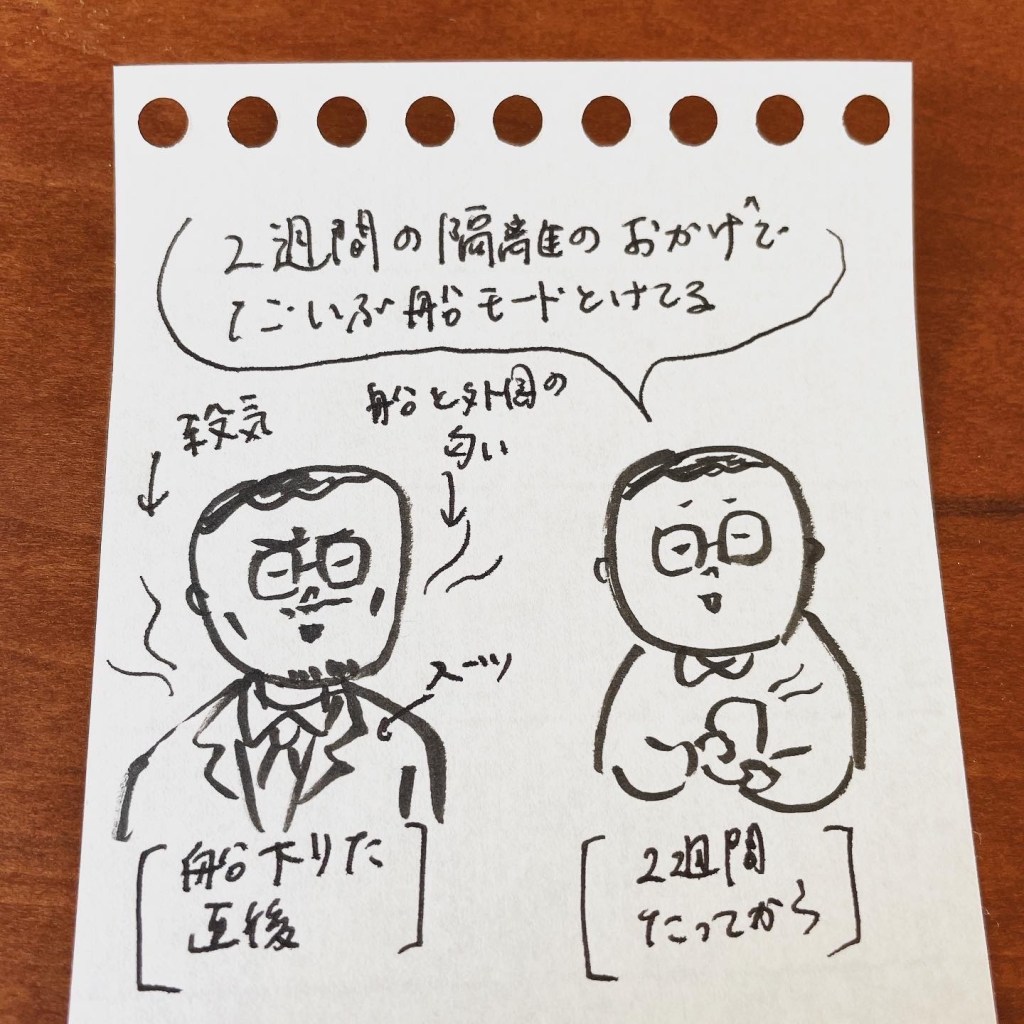 2週間の隔離のおかげで
てごいぶ船モードとけてる
殺気
船と外国の
匂い
スーツ
船下りた
直後
2週間
たってから